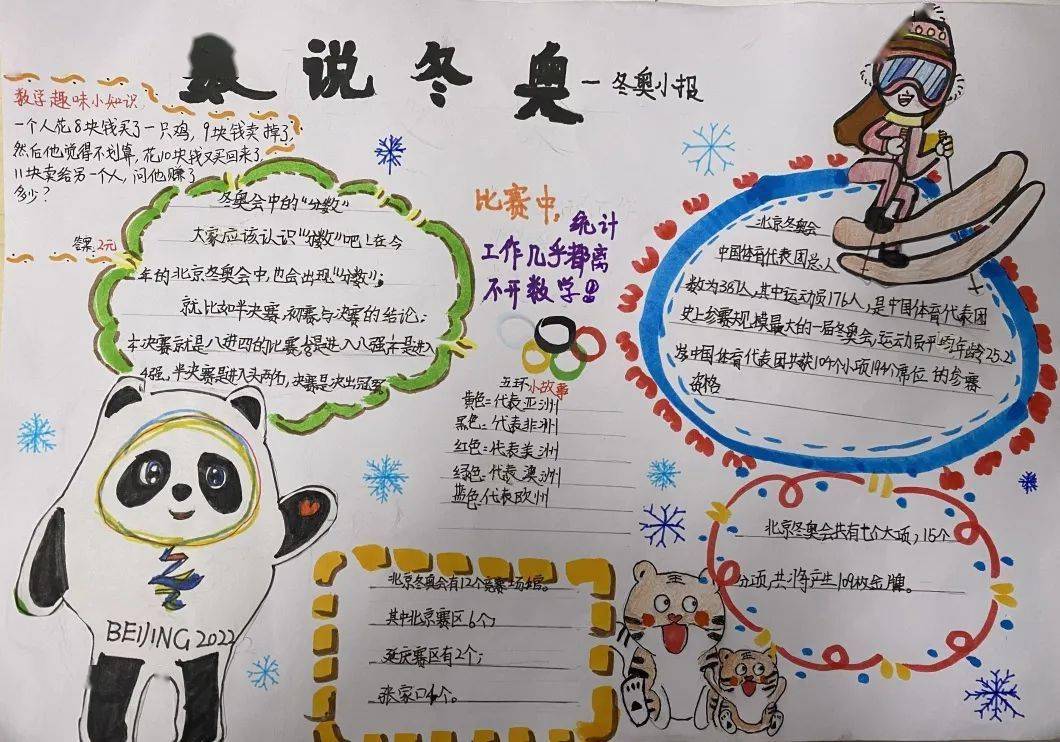 数说冬奥
—冬奥小报
数学趣味小知识
一个人花8块钱买了一只鸡，9块钱卖掉了，
然后他觉得不划算，花10块钱又买回来了，
11块卖给另一个人，问他赚了
多少？
答案：2元
冬奥会中的“分数”
大家应该认识“分数”吧！在今
年的北京冬奥会中，也会出现“分数”；
就比如半决赛，初赛与决赛的结论；
决赛就是八进四的比赛
4强，半决赛是进入头两名，决赛是决出冠军
比赛中，统计
工作几乎都离
不开数学！
五环小故事
黄色：代表亚洲
黑色：代表非洲
红色：代表美洲
绿色：代表澳洲
蓝色：代表欧州
北京冬奥会
中国体育代表团总人
数为387人，其中运动员176人，是中国体育代表团
史上参赛规模最大的一届冬奥会，运动员平均年龄25.2
岁中国体育代表团共获104个小项194个席位的参赛
资格
北京冬奥会共有七个大项，15个
分项，共将产生109枚金牌。
北京冬奥会有12个竞赛场馆。
其中北京赛区6个，
延庆赛区有2个；
张家口4个。
BEIJING 2022
王